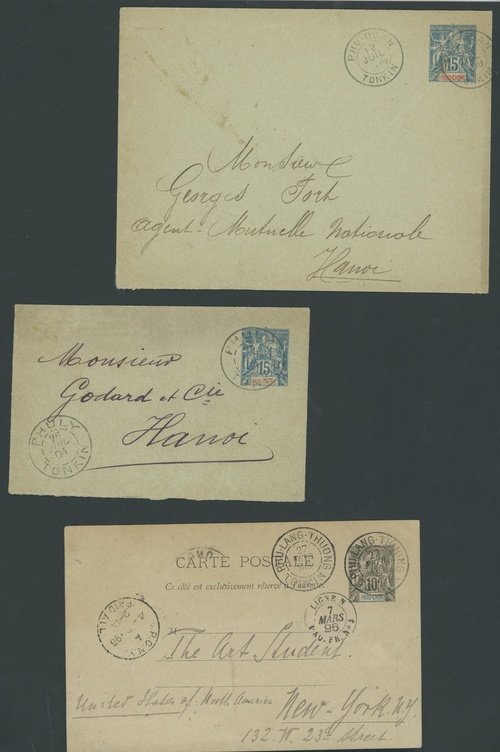 PHU-DOAN
12
JUIL
00
TONKIN
15
INDO-CHINE
Monsieur
Georges Fort
agent - Mutuelle Nationale
Hanoi
15
INDO-CHINE
Monsieur
Godard et Cie
Hanoi
PHULY
04
TONKIN
CARTE POSTALE
Ce côté est exclusivement réservé à l'adresse
PHU-LANG-THUONG
27
PHU-LANG-THUONG
10
INDO-CHINE
LIGNE N
7
MARS
96
PAQ. FR. Nº
M
The Art Student.
United States of North America
New-York. N.Y.
132. W. 23rd Street